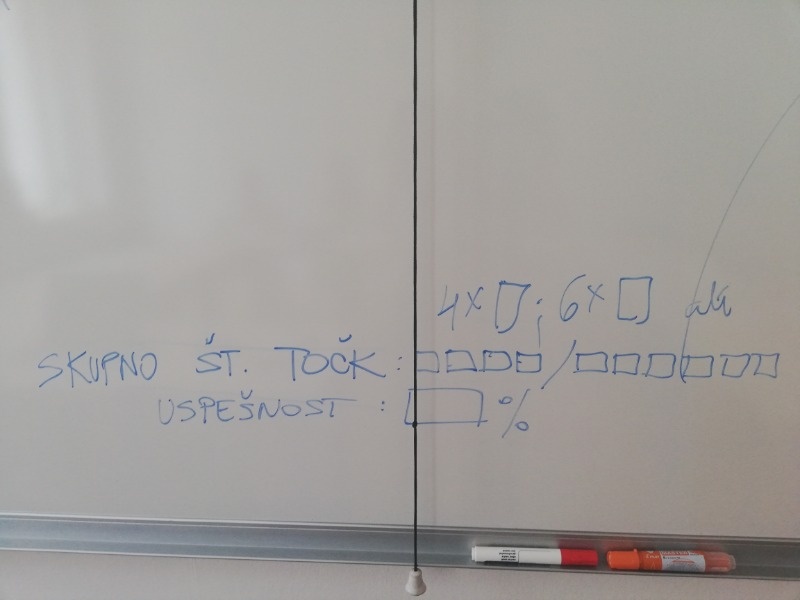 4× □ ; 6× □ ali
SKUPNO ŠT. TOČK: □□□□/□□□□□□□
USPEŠNOST: □ %